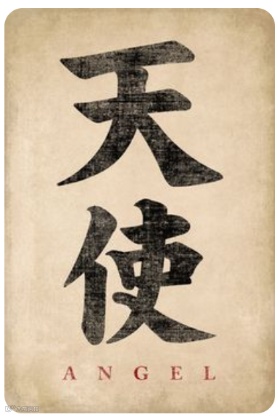 天
使
ANGEL